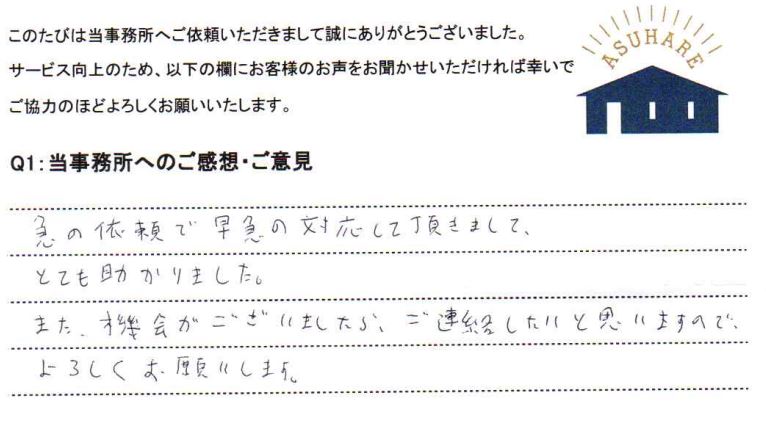 このたびは当事務所へご依頼いただきまして誠にありがとうございました。
サービス向上のため、以下の欄にお客様のお声をお聞かせいただければ幸いで
ご協力のほどよろしくお願いいたします。
ASUHARE
Q1:当事務所へのご感想・ご意見
急の依頼で早急の対応して頂きまして、
とても助かりました。
また、機会がございましたら、ご連絡したいと思いますので、
よろしくお願いします。